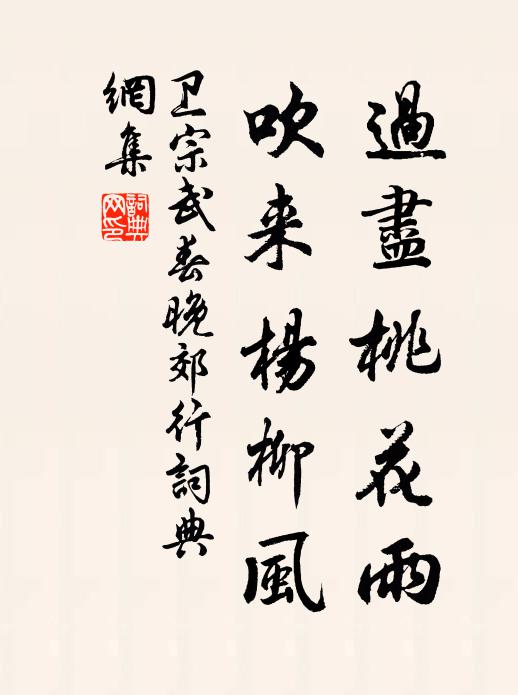 過盡桃花雨
吹来楊柳風
卫宗武春晚郊行詞典
網集
詞典
网印